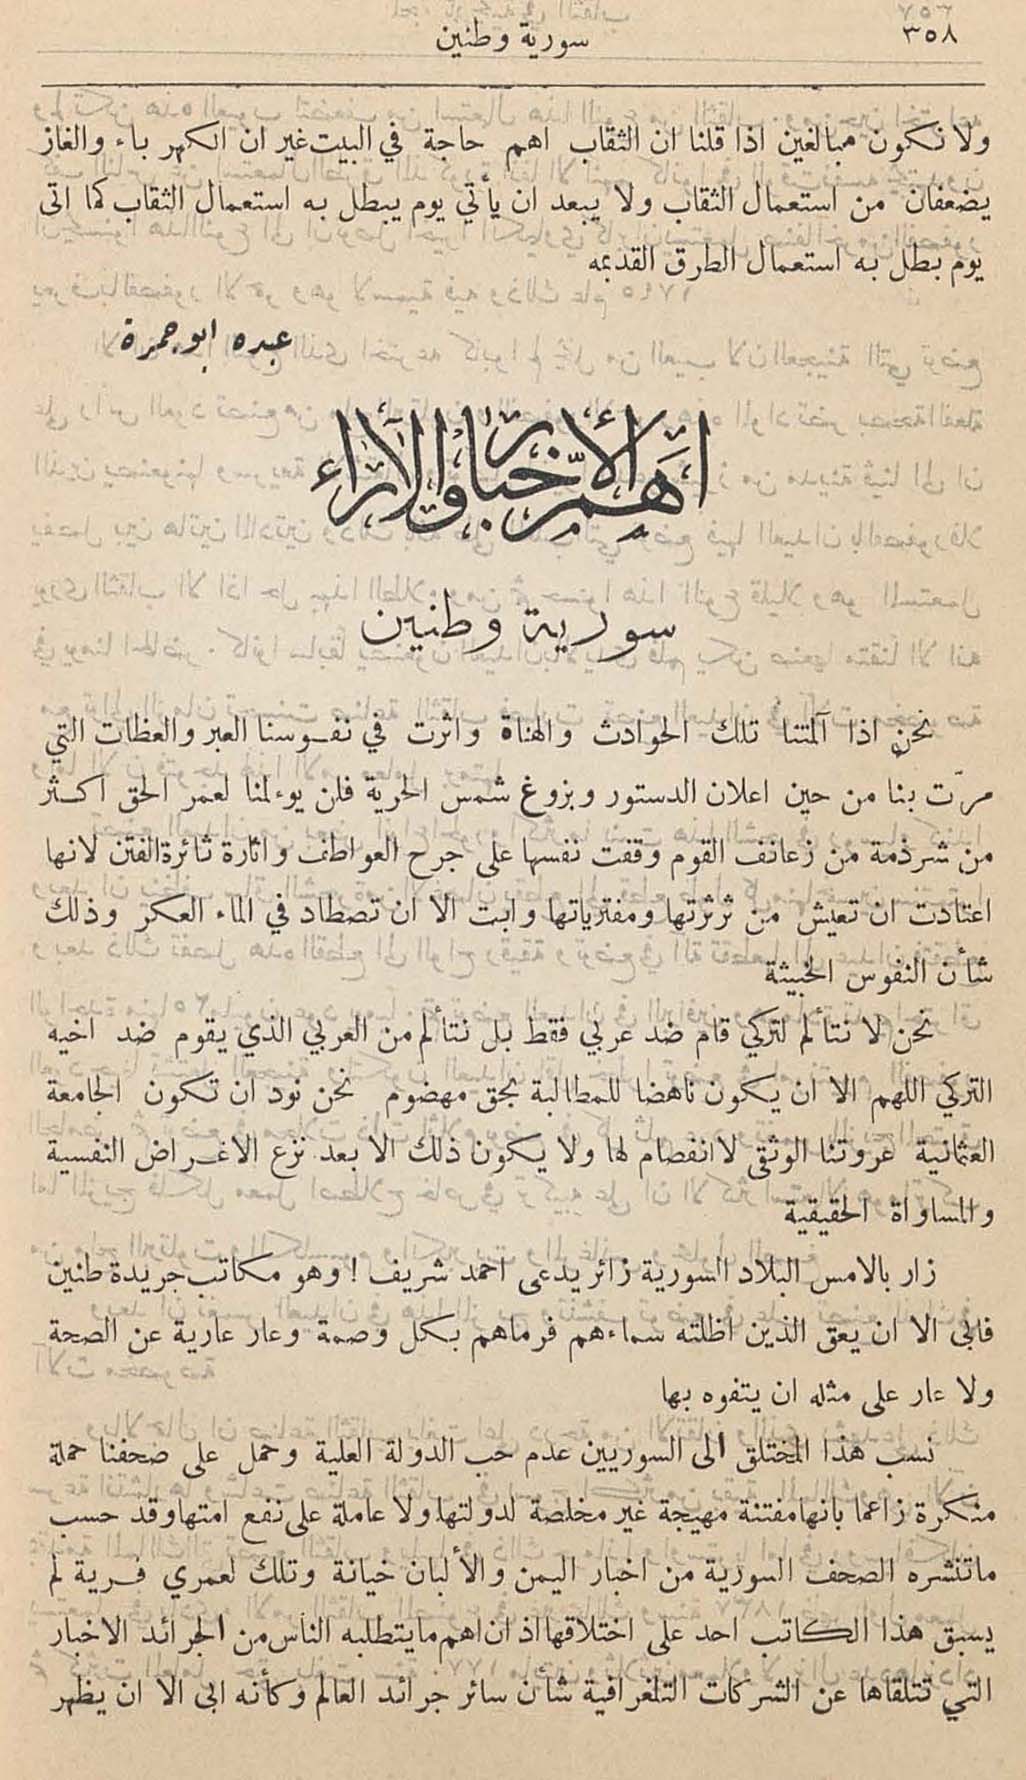 ٣٥٨
سورية وطنين
ولا نكون مبالغين اذا قلنا ان الثقاب اهم حاجة في البيت غير ان الكهر باء والغاز
يضعفان من استعمال الثقاب ولا يبعد ان يأتي يوم يبطل به استعمال الثقاب كما اتى
يوم بطل به استعمال الطرق القديمه
عبده ابو جمرة
اهم الاخبار والآراء
سورية وطنين
نحن اذا آلمتنا تلك الحوادث والهناة واثرت في نفوسنا العبر والعظات التي
مرّت بنا من حين اعلان الدستور وبزوغ شمس الحرية فلن يوءلمنا لعمر الحق اكثر
من شرذمة من زعانف القوم وقفت نفسها على جرح العواطف واثارة ثائرة الفتن لانها
اعتادت ان تعيش من ثرثرتها ومفترياتها وابت الا ان تصطاد في الماء العكر وذلك
شأن النفوس الخبيثة
نحن لا نتألم لتركي قام ضد عربي فقط بل نتألم من العربي الذي يقوم ضد اخيه
التركي اللهم الا ان يكون ناهضا للمطالبة بحق مهضوم نحن نود ان تكون الجامعة
العثمانية عروتنا الوثقى لا انفصام لها ولا يكون ذلك الا بعد نزع الاغراض النفسية
والمساواة الحقيقية
زار بالامس البلاد السورية زائر يدعى احمد شريف ! وهو مكاتب جريدة طنين
فابى الا ان يعق الذين اظلته سماءهم فرماهم بكل وصمة وعار عارية عن الصحة
ولا عار على مثله ان يتفوه بها
نسب هذا المختلق الى السوريين عدم حب الدولة العلية وحمل على صحفنا حملة
منكرة زاعما بانها مفتنة مهيجة غير مخلصة لدولتها ولا عاملة على نفع امتها وقد حسب
ماتنشره الصحف السورية من اخبار اليمن والألبان خيانة وتلك لعمري فرية لم
يسبق هذا الكاتب احد على اختلاقها اذ ان اهم ما يتطلبه الناس من الجرائد الاخبار
التي تتلقاها عن الشركات التلغرافية شأن سائر جرائد العالم وكأنه ابى الا ان يظهر